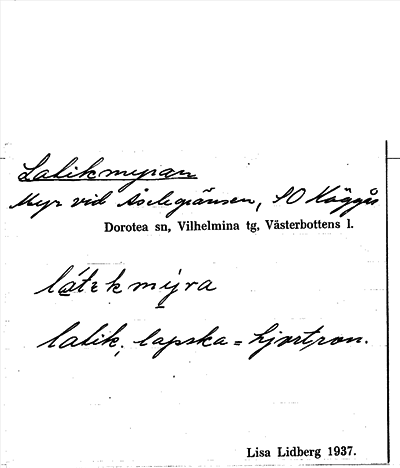 Latikmyran
Myr vid Åselegränsen, SO Häggås
Dorotea sn, Vilhelmina tg, Västerbottens l.
látɩkmyra
latik, lapska = hjortron.
Lisa Lidberg 1937.